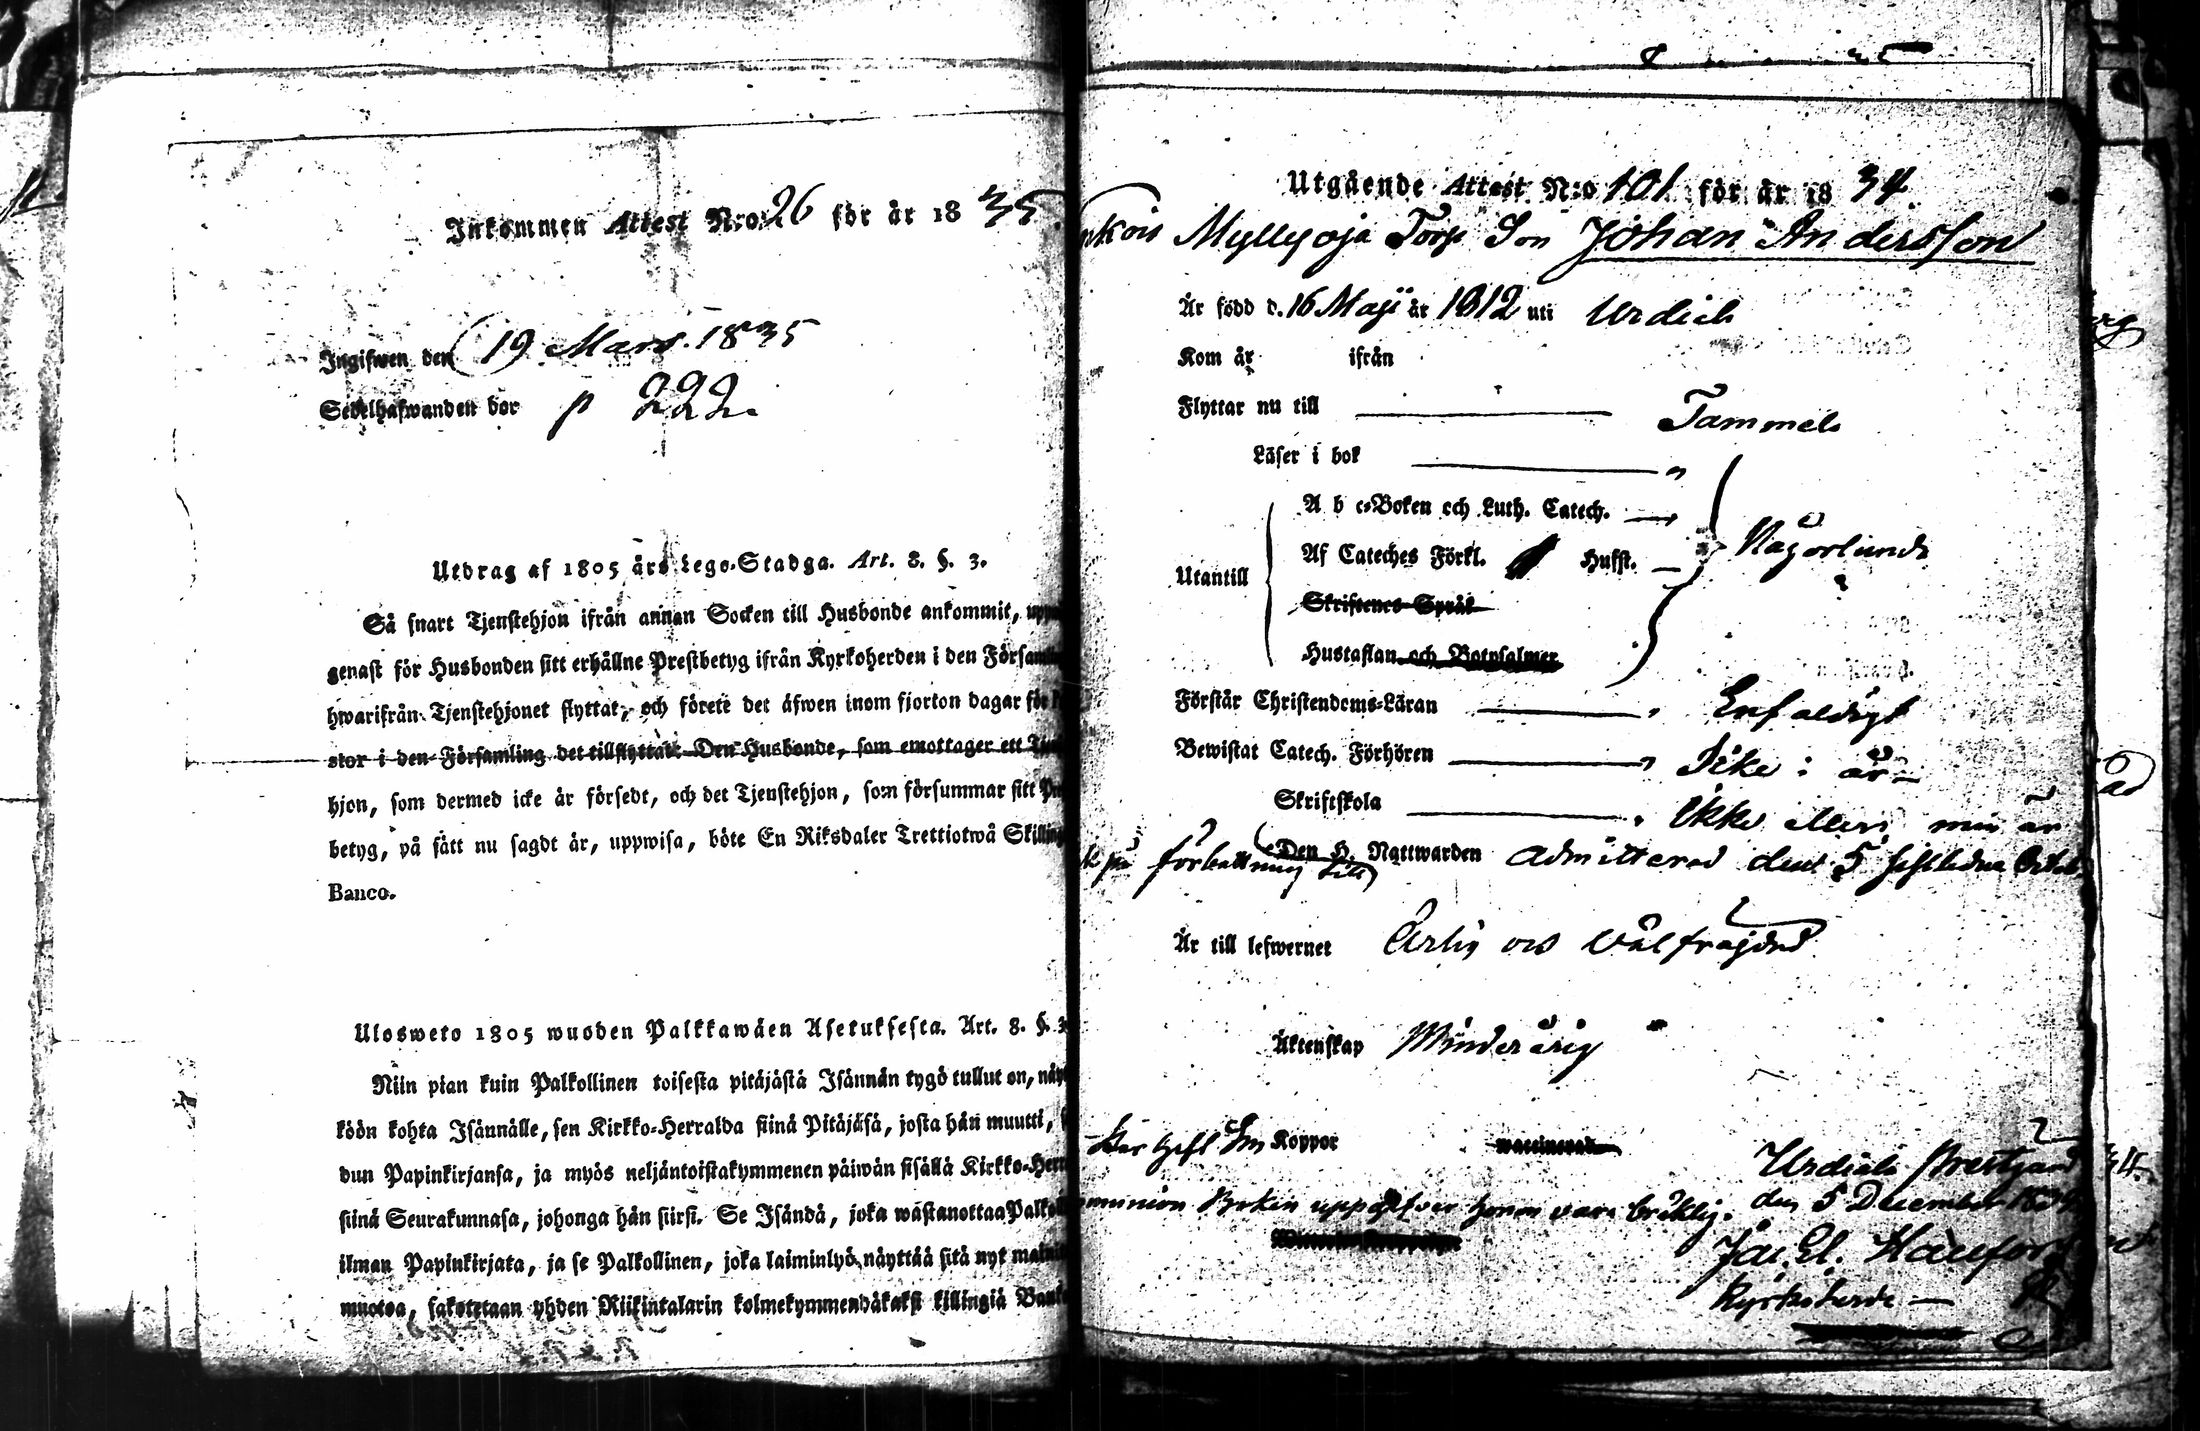 Inkommen Attest N:o 26 för år 1835
Ingifwen den 19 Mars. 1835
Sedelhafwanden bor p 222
Utdrag af 1805 års Lego-Stadga. Art. 8. §. 3.
Så snart Tjenstehjon ifrån annan Socken till Husbonde ankommit,
genast för Husbonden sitt erhållne Prestbetyg ifrån Kyrkoherden i den
hwarifrån Tjenstehjonet flyttat, och förete det äfwen inom fjorton dagar för
stor i den Församling det tillflyttat. Den Husbonde, som emottager ett
hjon, som dermed icke är försedt, och det Tjenstehjon, som försummar sitt
betyg, på sätt nu sagdt är, uppwisa, böte En Riksdaler Trettiotwå
Banco.
Ulosweto 1805 wuoden Palkkawäen Asetuksesta. Art. 8. §. 3
Niin pian kuin Palkollinen toisesta pitäjästä Isännän tygö tullut on,
köön kohta Isännälle, sen Kirkko-Herralda siinä Pitäjäsä, josta hän muutti,
dun Papinkirjansa, ja myös neljäntoistakymmenen päiwän sisällä
siinä Seurakunnasa, johonga hän siirsi. Se Isändä, joka wastanottaa
ilman Papinkirjata, ja se Palkollinen, joka laiminlyö näyttää sitä nyt
muotoa, sakotetaan yhden Riikintalarin kolmekymmendäkaksi killingiä
Utgående Attest N:o 101 för år 1834
Myllyoja Torp Son Johan Andersson
Är född d. 16 Maji år 1812 uti Urdiala
Kom år ifrån
Flyttar nu till Tammela
Läser i bok
Utantill
A b c-Boken och Luth. Catech.
Af Cateches Förkl. Hufst.
Någorlunda
Skriftenes Språk
Hustaflan och Botpsalmer
Förstår Christendoms-Läran Enfaldigt
Bewistat Catech. Förhören Icke i år
Skriftskola Icke eller i
förbättring till Den H. Nattwarden admitterad den 5 sistledne
Är till lefwernet Ärlig och Välfrägdad
Äktenskap Minderårig
Har haft Koppor
Boken uppgifver honom vara bräklig.
Urdiala Prestgård
den 5 December 1834
Kyrkoherde